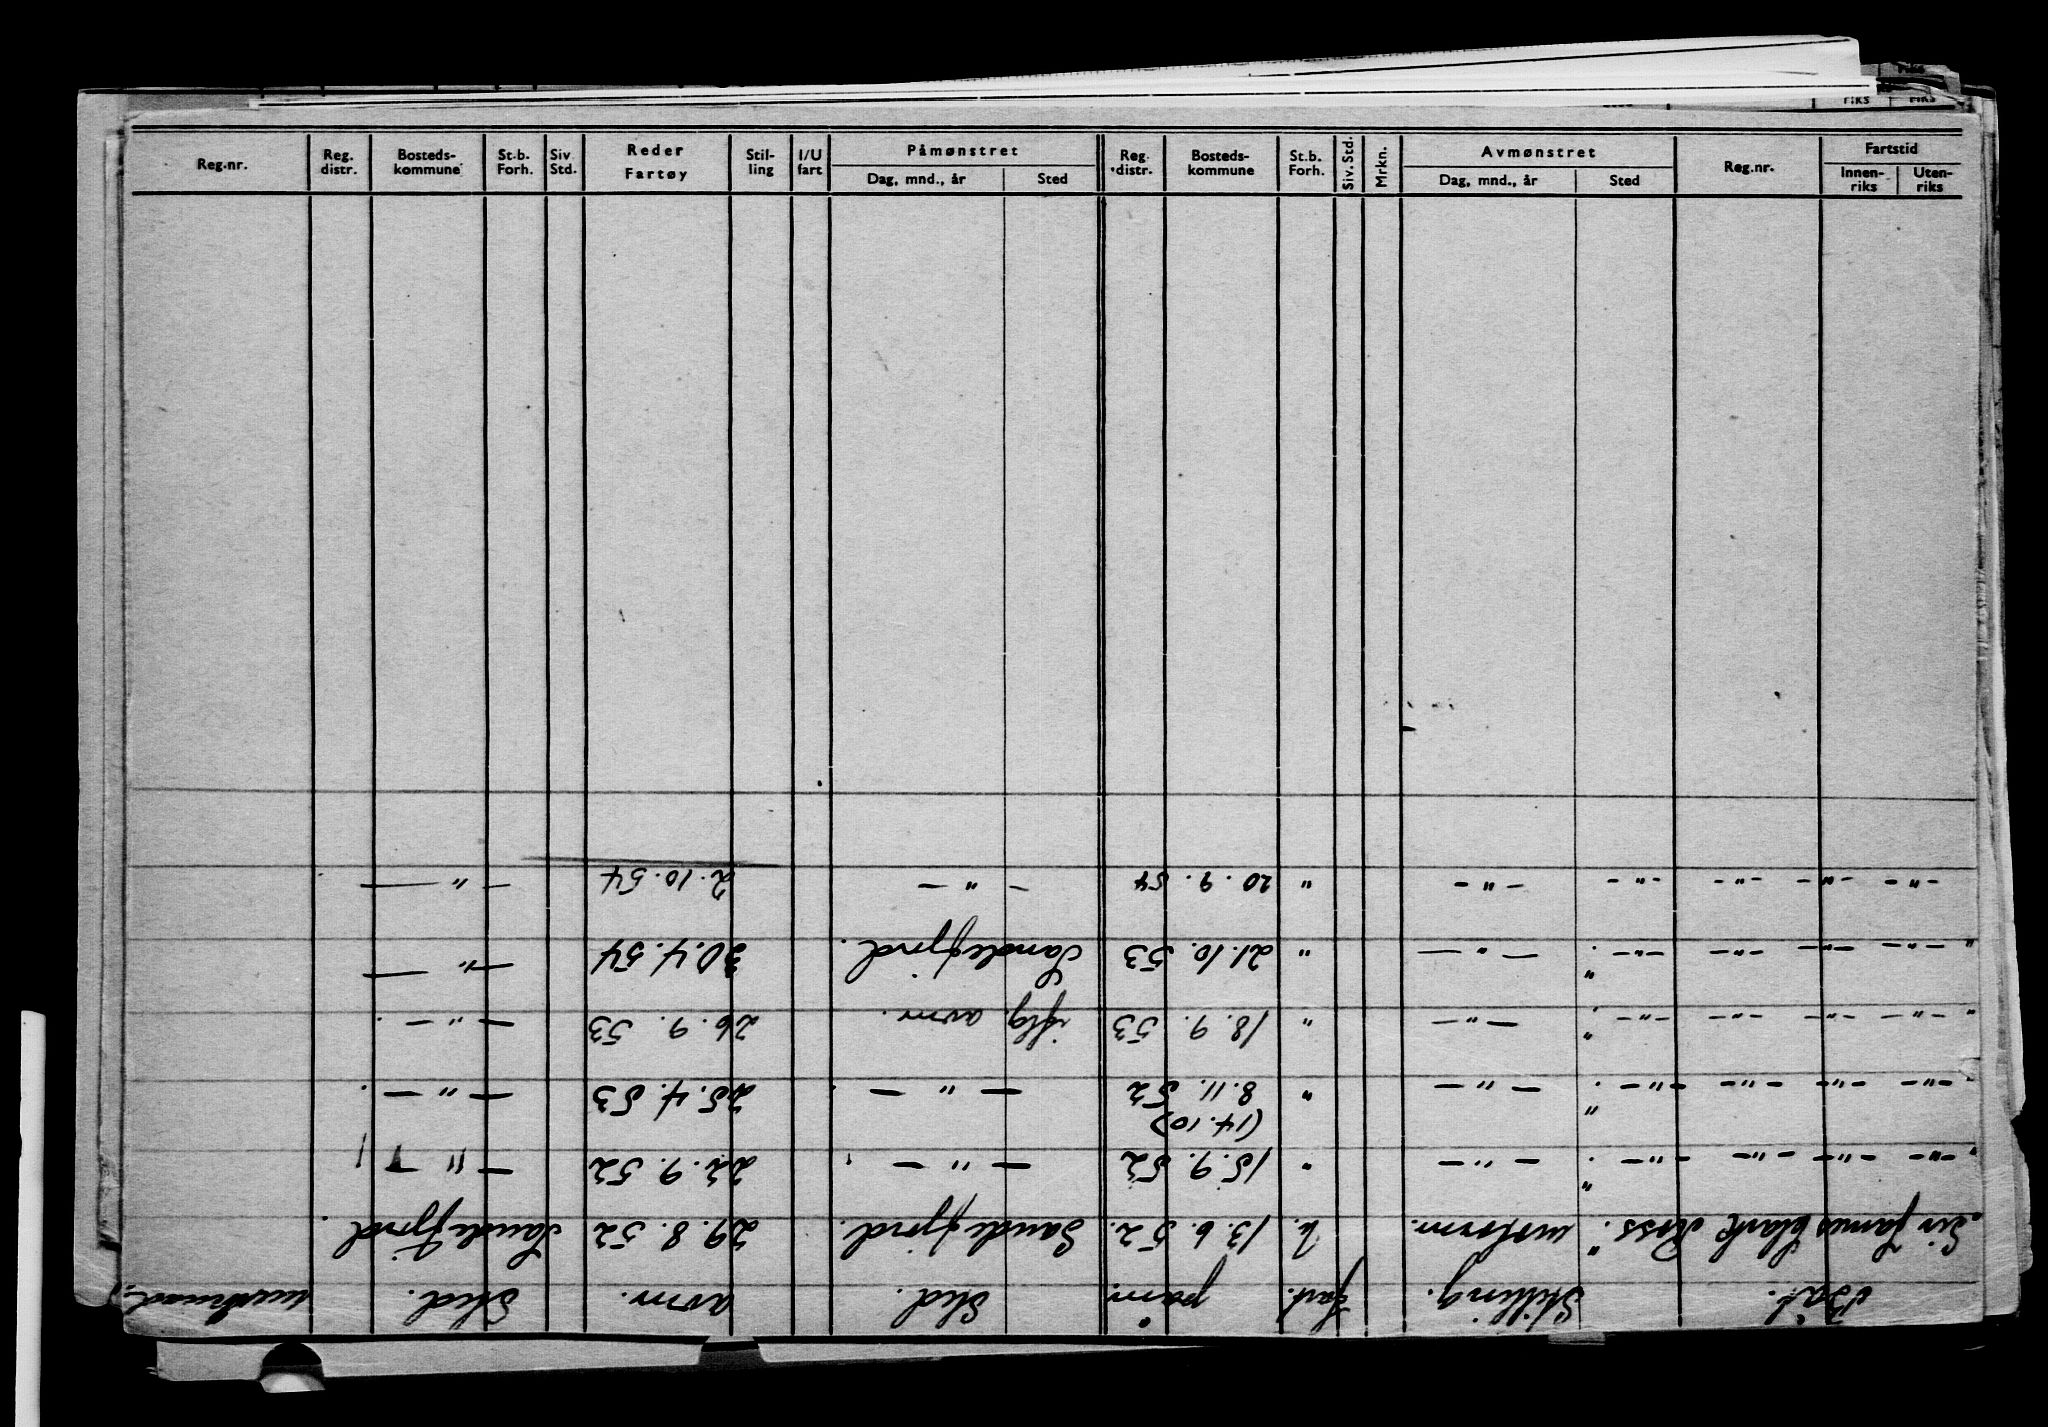 Reg.nr.
Reg. distr.
Bosteds-kommune
St.b. Forh.
Siv. Std.
Reder
Fartøy
Stil-ling
I/U fart
Påmønstret
Dag, mnd., år
Sted
Reg. distr.
Bosteds-kommune
St.b. Forh.
Siv. Std.
Mrkn.
Avmønstret
Dag, mnd., år
Sted
Reg.nr.
Fartstid
Innen-riks
Uten-riks
Båt. Stilling. Fart. påm. Sted. avm. Sted.
"Sir James Clark Ross." motorm. U. 13.6.52. Sandefjord. 29.8.52 Sandefjord.
" -"- -"- -"- -"- " -"- " 15.9.52 -"- 22.9.52 -"-
(14.10)
-"- -"- -"- -"- " -"- " 8.11.52 -"- 25.4.53 -"-
" -"- -"- -"- -"- " -"- " 18.9.53 iflg. avm. 26.9.53 -"-
" -"- -"- -"- -"- " -"- " 21.10.53 Sandefjord. 30.4.54 -"-
-"- -"- -"- -"- -"- -"- " 20.9.54 -"- 2.10.54 -"-